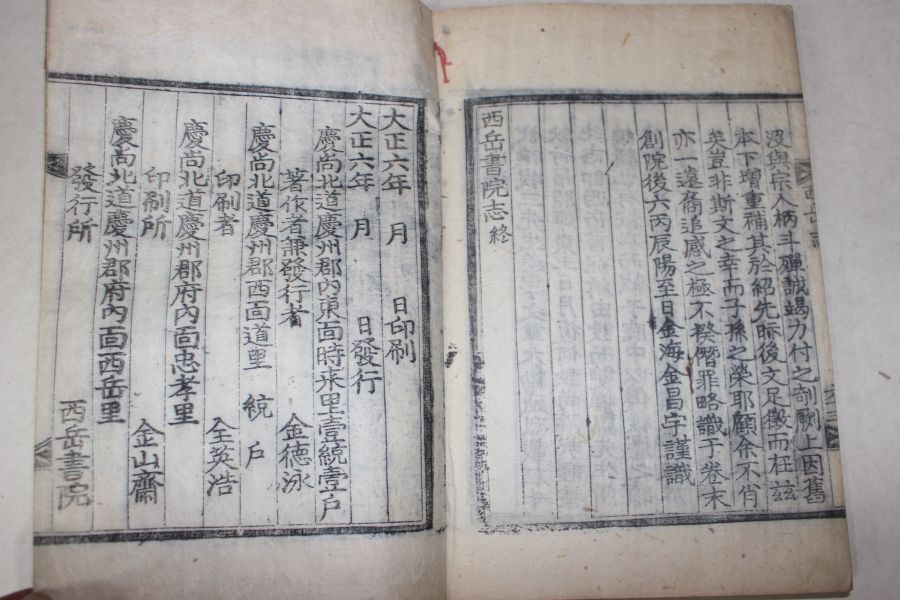 没與宗人柄斗殫誠竭力付之剞劂上因舊
本下增重補其於紹先眎後文足徵而在玆
矣豈非斯文之幸而子孫之榮耶顧余不肖
亦一遠裔追感之極不揆僭罪略識于卷末
創院後六丙辰陽至日金海金昌宇謹識
西岳書院志終
大正六年 月 日印刷
大正六年 月 日發行
慶尚北道慶州郡內東面時来里壹統壹戶
著作者兼發行者 金德泳
慶尚北道慶州郡西面道里 統 戶
印刷者 全英浩
慶尚北道慶州郡府內面忠孝里
印刷所 金山齋
慶尚北道慶州郡府內面西岳里
發行所 西岳書院